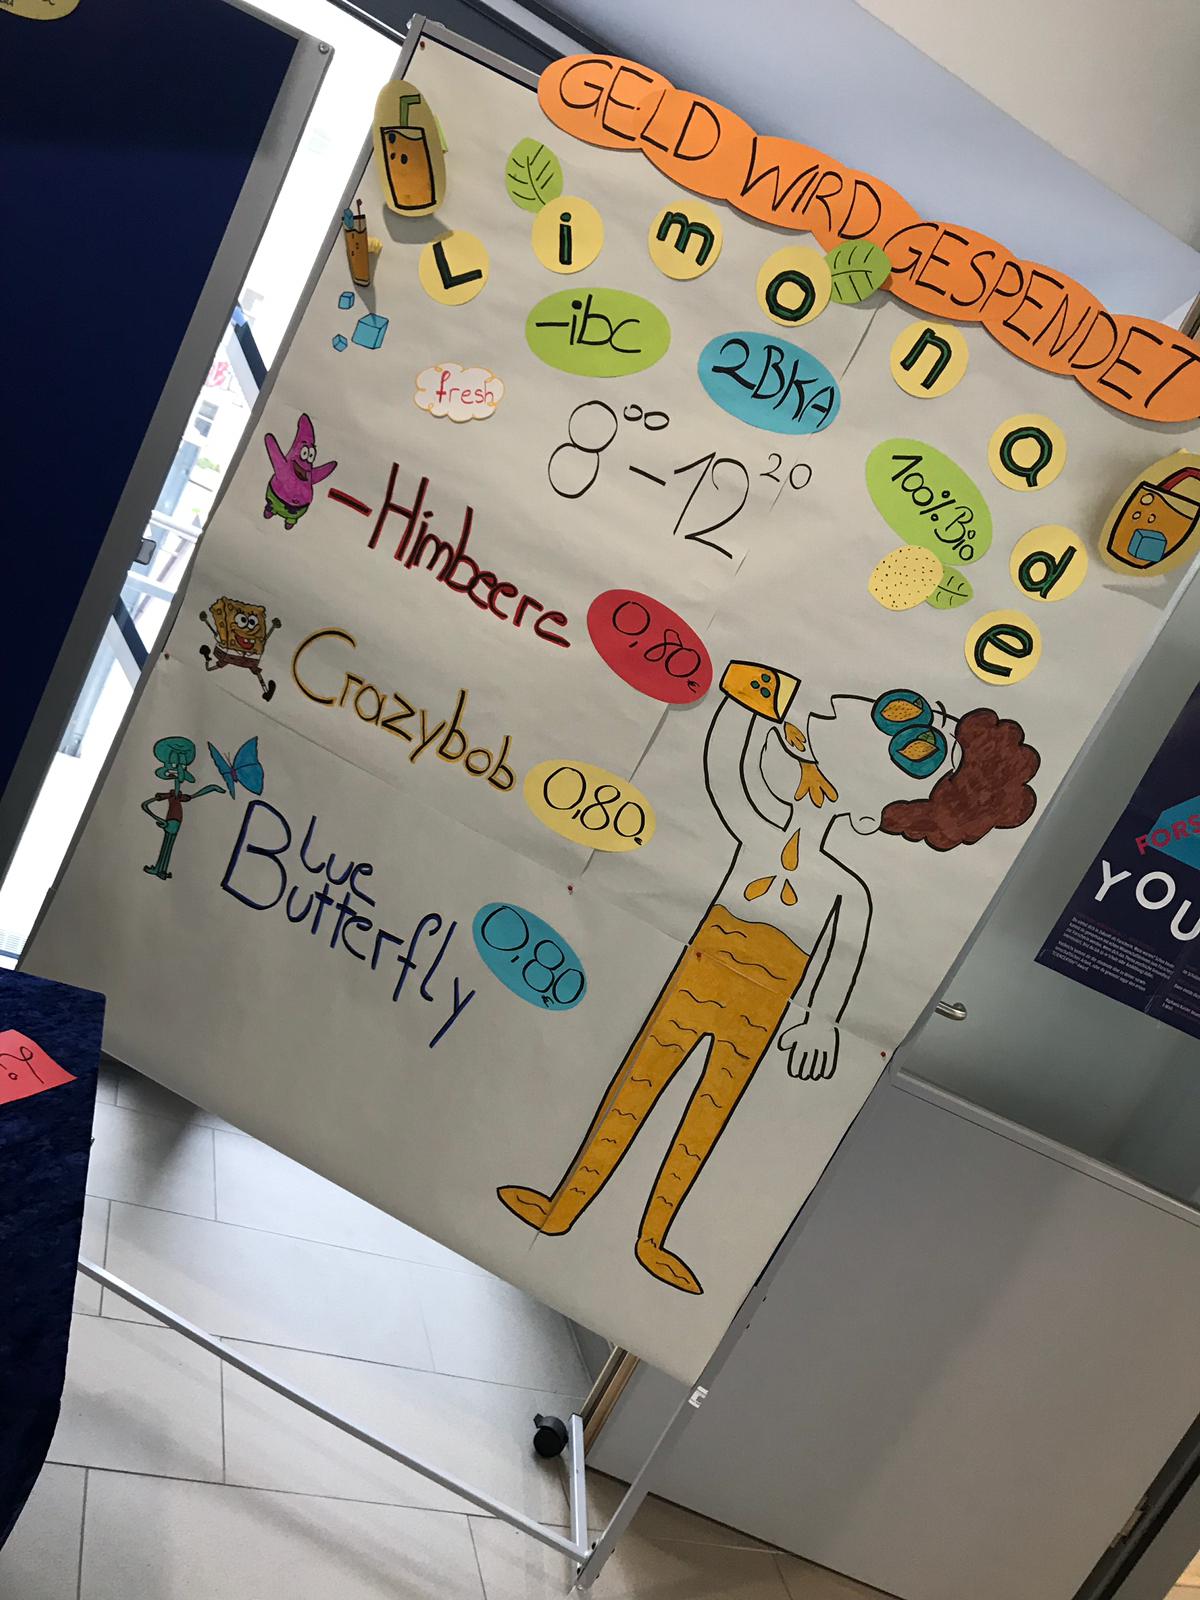 GELD WIRD GESPENDET
Limonade
-ibc
2BKA
fresh
8⁰⁰-12²⁰
100% Bio
-Himbeere 0,80€
Crazybob 0,80€
Blue
Butterfly 0,80€
FORS
YOU